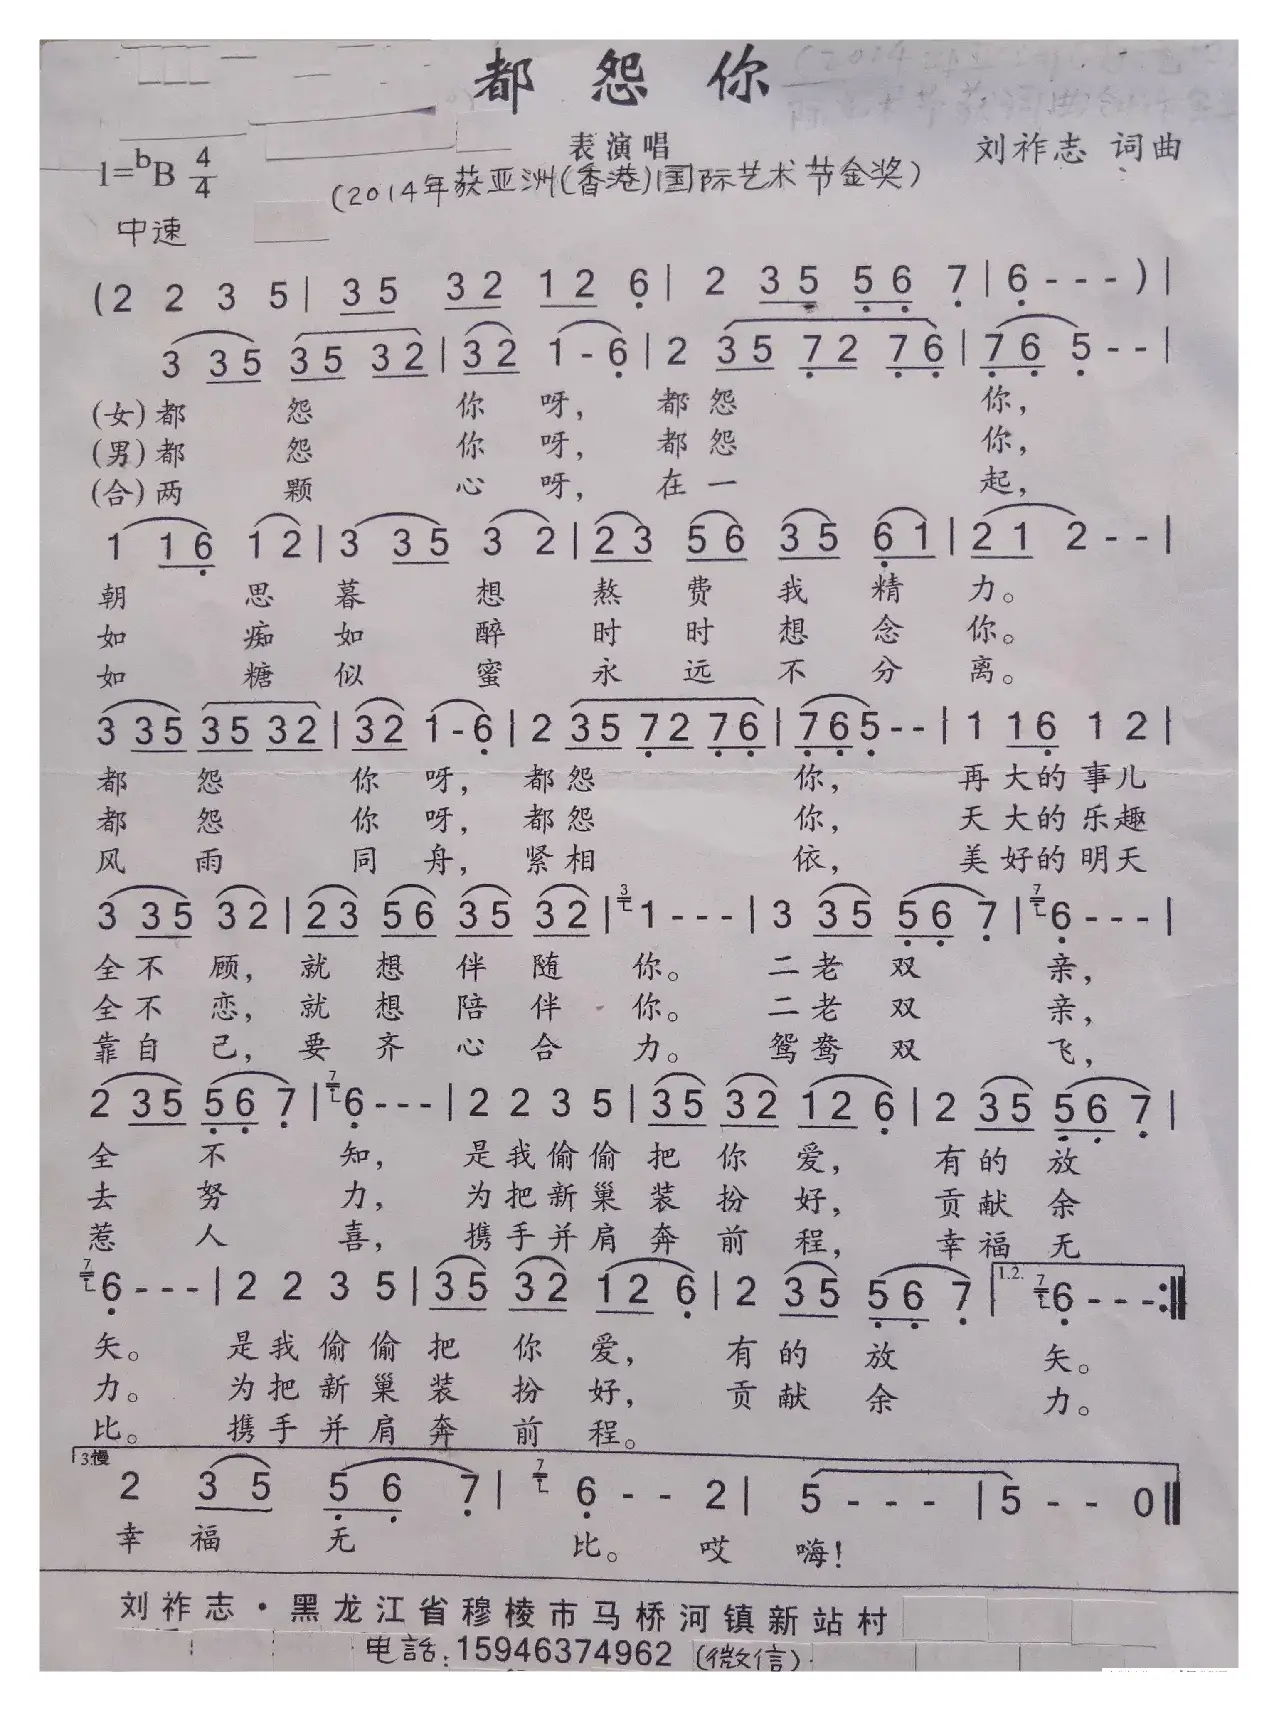 都 怨 你
表演唱
刘祚志 词曲
1=ᵇB 4/4
(2014年获亚洲(香港)国际艺术节金奖)
中速
(2 2 3 5 | 3 5 3 2 1 2 6 | 2 3 5 5 6 7 | 6 - - - ) |
3 3 5 3 5 3 2 | 3 2 1 - 6 | 2 3 5 7 2 7 6 | 7 6 5 - - |
(女)都 怨 你 呀, 都 怨 你,
(男)都 怨 你 呀, 都 怨 你,
(合)两 颗 心 呀, 在 一 起,
1 1 6 1 2 | 3 3 5 3 2 | 2 3 5 6 3 5 6 1 | 2 1 2 - - |
朝 思 暮 想 熬 费 我 精 力。
如 痴 如 醉 时 时 想 念 你。
如 糖 似 蜜 永 远 不 分 离。
3 3 5 3 5 3 2 | 3 2 1 - 6 | 2 3 5 7 2 7 6 | 7 6 5 - - | 1 1 6 1 2 |
都 怨 你 呀, 都 怨 你, 再 大 的 事 儿
都 怨 你 呀, 都 怨 你, 天 大 的 乐 趣
风 雨 同 舟, 紧 相 依, 美 好 的 明 天
3 3 5 3 2 | 2 3 5 6 3 5 3 2 | 3 1 - - - | 3 3 5 5 6 7 | 7 6 - - - |
全 不 顾, 就 想 伴 随 你。 二 老 双 亲,
全 不 恋, 就 想 陪 伴 你。 二 老 双 亲,
靠 自 己, 要 齐 心 合 力。 鸳 鸯 双 飞,
2 3 5 5 6 7 | 7 6 - - - | 2 2 3 5 | 3 5 3 2 1 2 6 | 2 3 5 5 6 7 |
全 不 知, 是 我 偷 偷 把 你 爱, 有 的 放
去 努 力, 为 把 新 巢 装 扮 好, 贡 献 余
惹 人 喜, 携 手 并 肩 奔 前 程, 幸 福 无
7 6 - - - | 2 2 3 5 | 3 5 3 2 1 2 6 | 2 3 5 5 6 7 | 1.2. 7 6 - - - :‖
矢。 是 我 偷 偷 把 你 爱, 有 的 放 矢。
力。 为 把 新 巢 装 扮 好, 贡 献 余 力。
比。 携 手 并 肩 奔 前 程。
3.慢
2 3 5 5 6 7 | 7 6 - - 2 | 5 - - - | 5 - - 0 ‖
幸 福 无 比。 哎 嗨!
刘祚志·黑龙江省穆棱市马桥河镇新站村
电話:15946374962 (微信)